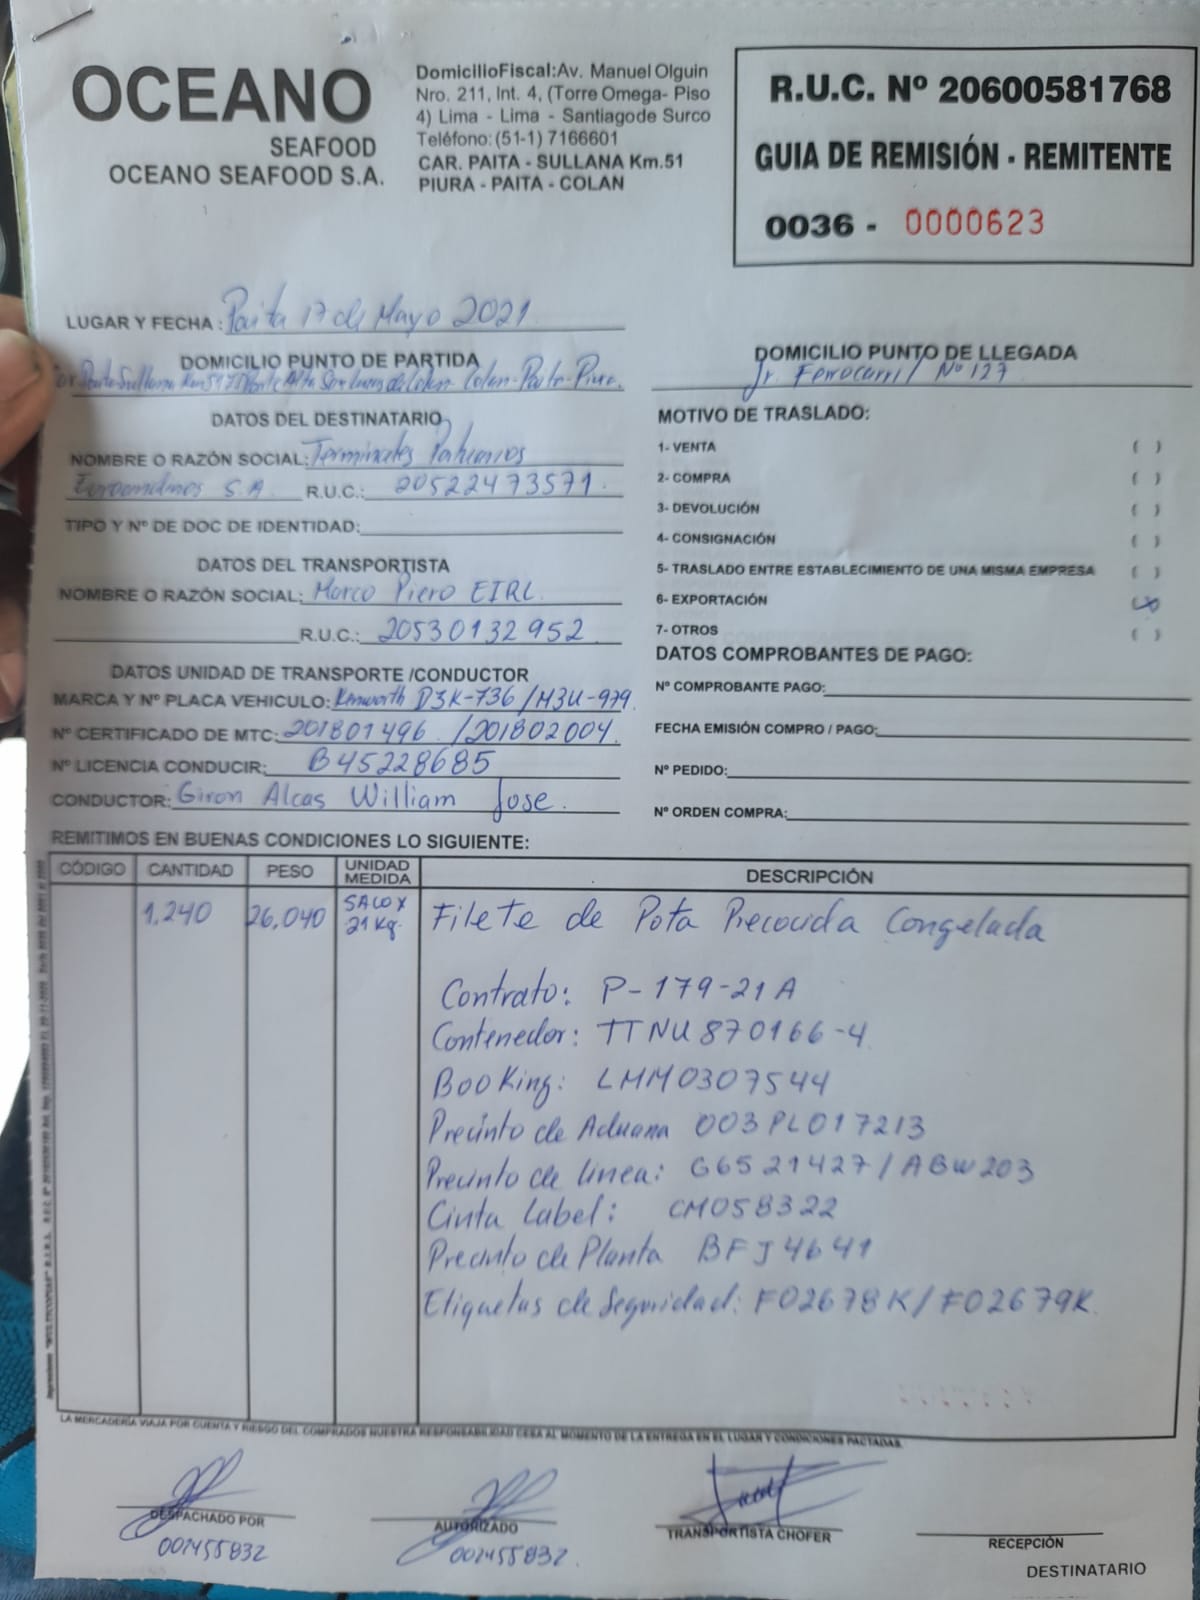 OCEANO
SEAFOOD
OCEANO SEAFOOD S.A.
DomicilioFiscal:Av. Manuel Olguin
Nro. 211, Int. 4, (Torre Omega- Piso
4) Lima - Lima - Santiagode Surco
Teléfono: (51-1) 7166601
CAR. PAITA - SULLANA Km.51
PIURA - PAITA - COLAN
R.U.C. Nº 20600581768
GUIA DE REMISIÓN - REMITENTE
0036 - 0000623
LUGAR Y FECHA : Paita 17 de Mayo 2021
DOMICILIO PUNTO DE PARTIDA
Colan-Paita-Piura.
DOMICILIO PUNTO DE LLEGADA
Jr. Ferrocarril Nº 127
DATOS DEL DESTINATARIO
NOMBRE O RAZÓN SOCIAL: Terminales Portuarios
Euroandinos S.A R.U.C.: 20522473571.
TIPO Y Nº DE DOC DE IDENTIDAD:
DATOS DEL TRANSPORTISTA
NOMBRE O RAZÓN SOCIAL: Marco Piero EIRL.
R.U.C.: 20530132952
DATOS UNIDAD DE TRANSPORTE /CONDUCTOR
MARCA Y Nº PLACA VEHICULO: Kenworth D3K-736 /M3U-979
Nº CERTIFICADO DE MTC: 201801496 /201802004
Nº LICENCIA CONDUCIR: B45228685
CONDUCTOR: Giron Alcas William Jose.
MOTIVO DE TRASLADO:
1- VENTA ( )
2- COMPRA ( )
3- DEVOLUCIÓN ( )
4- CONSIGNACIÓN ( )
5- TRASLADO ENTRE ESTABLECIMIENTO DE UNA MISMA EMPRESA ( )
6- EXPORTACIÓN (X)
7- OTROS ( )
DATOS COMPROBANTES DE PAGO:
Nº COMPROBANTE PAGO:
FECHA EMISIÓN COMPRO / PAGO:
Nº PEDIDO:
Nº ORDEN COMPRA:
REMITIMOS EN BUENAS CONDICIONES LO SIGUIENTE:
CÓDIGO CANTIDAD PESO UNIDAD MEDIDA DESCRIPCIÓN
1,240 26,040 SACO X 21 Kg. Filete de Pota Precocida Congelada
Contrato: P-179-21A
Contenedor: TTNU 870166-4
Booking: LMM0307544
Precinto de Aduana 003PL017213
Precinto de linea: G6521427/ABW203
Cinta Label: CM058322
Precinto de Planta BFJ4641
Etiquetas de Seguridad: F02678K/F02679K
LA MERCADERÍA VIAJA POR CUENTA Y RIESGO DEL COMPRADOS NUESTRA RESPONSABILIDAD CESA AL MOMENTO DE LA ENTREGA EN EL LUGAR Y CONDICIONES PACTADAS.
DESPACHADO POR
001455832
AUTORIZADO
001455832
TRANSPORTISTA CHOFER
RECEPCIÓN
DESTINATARIO